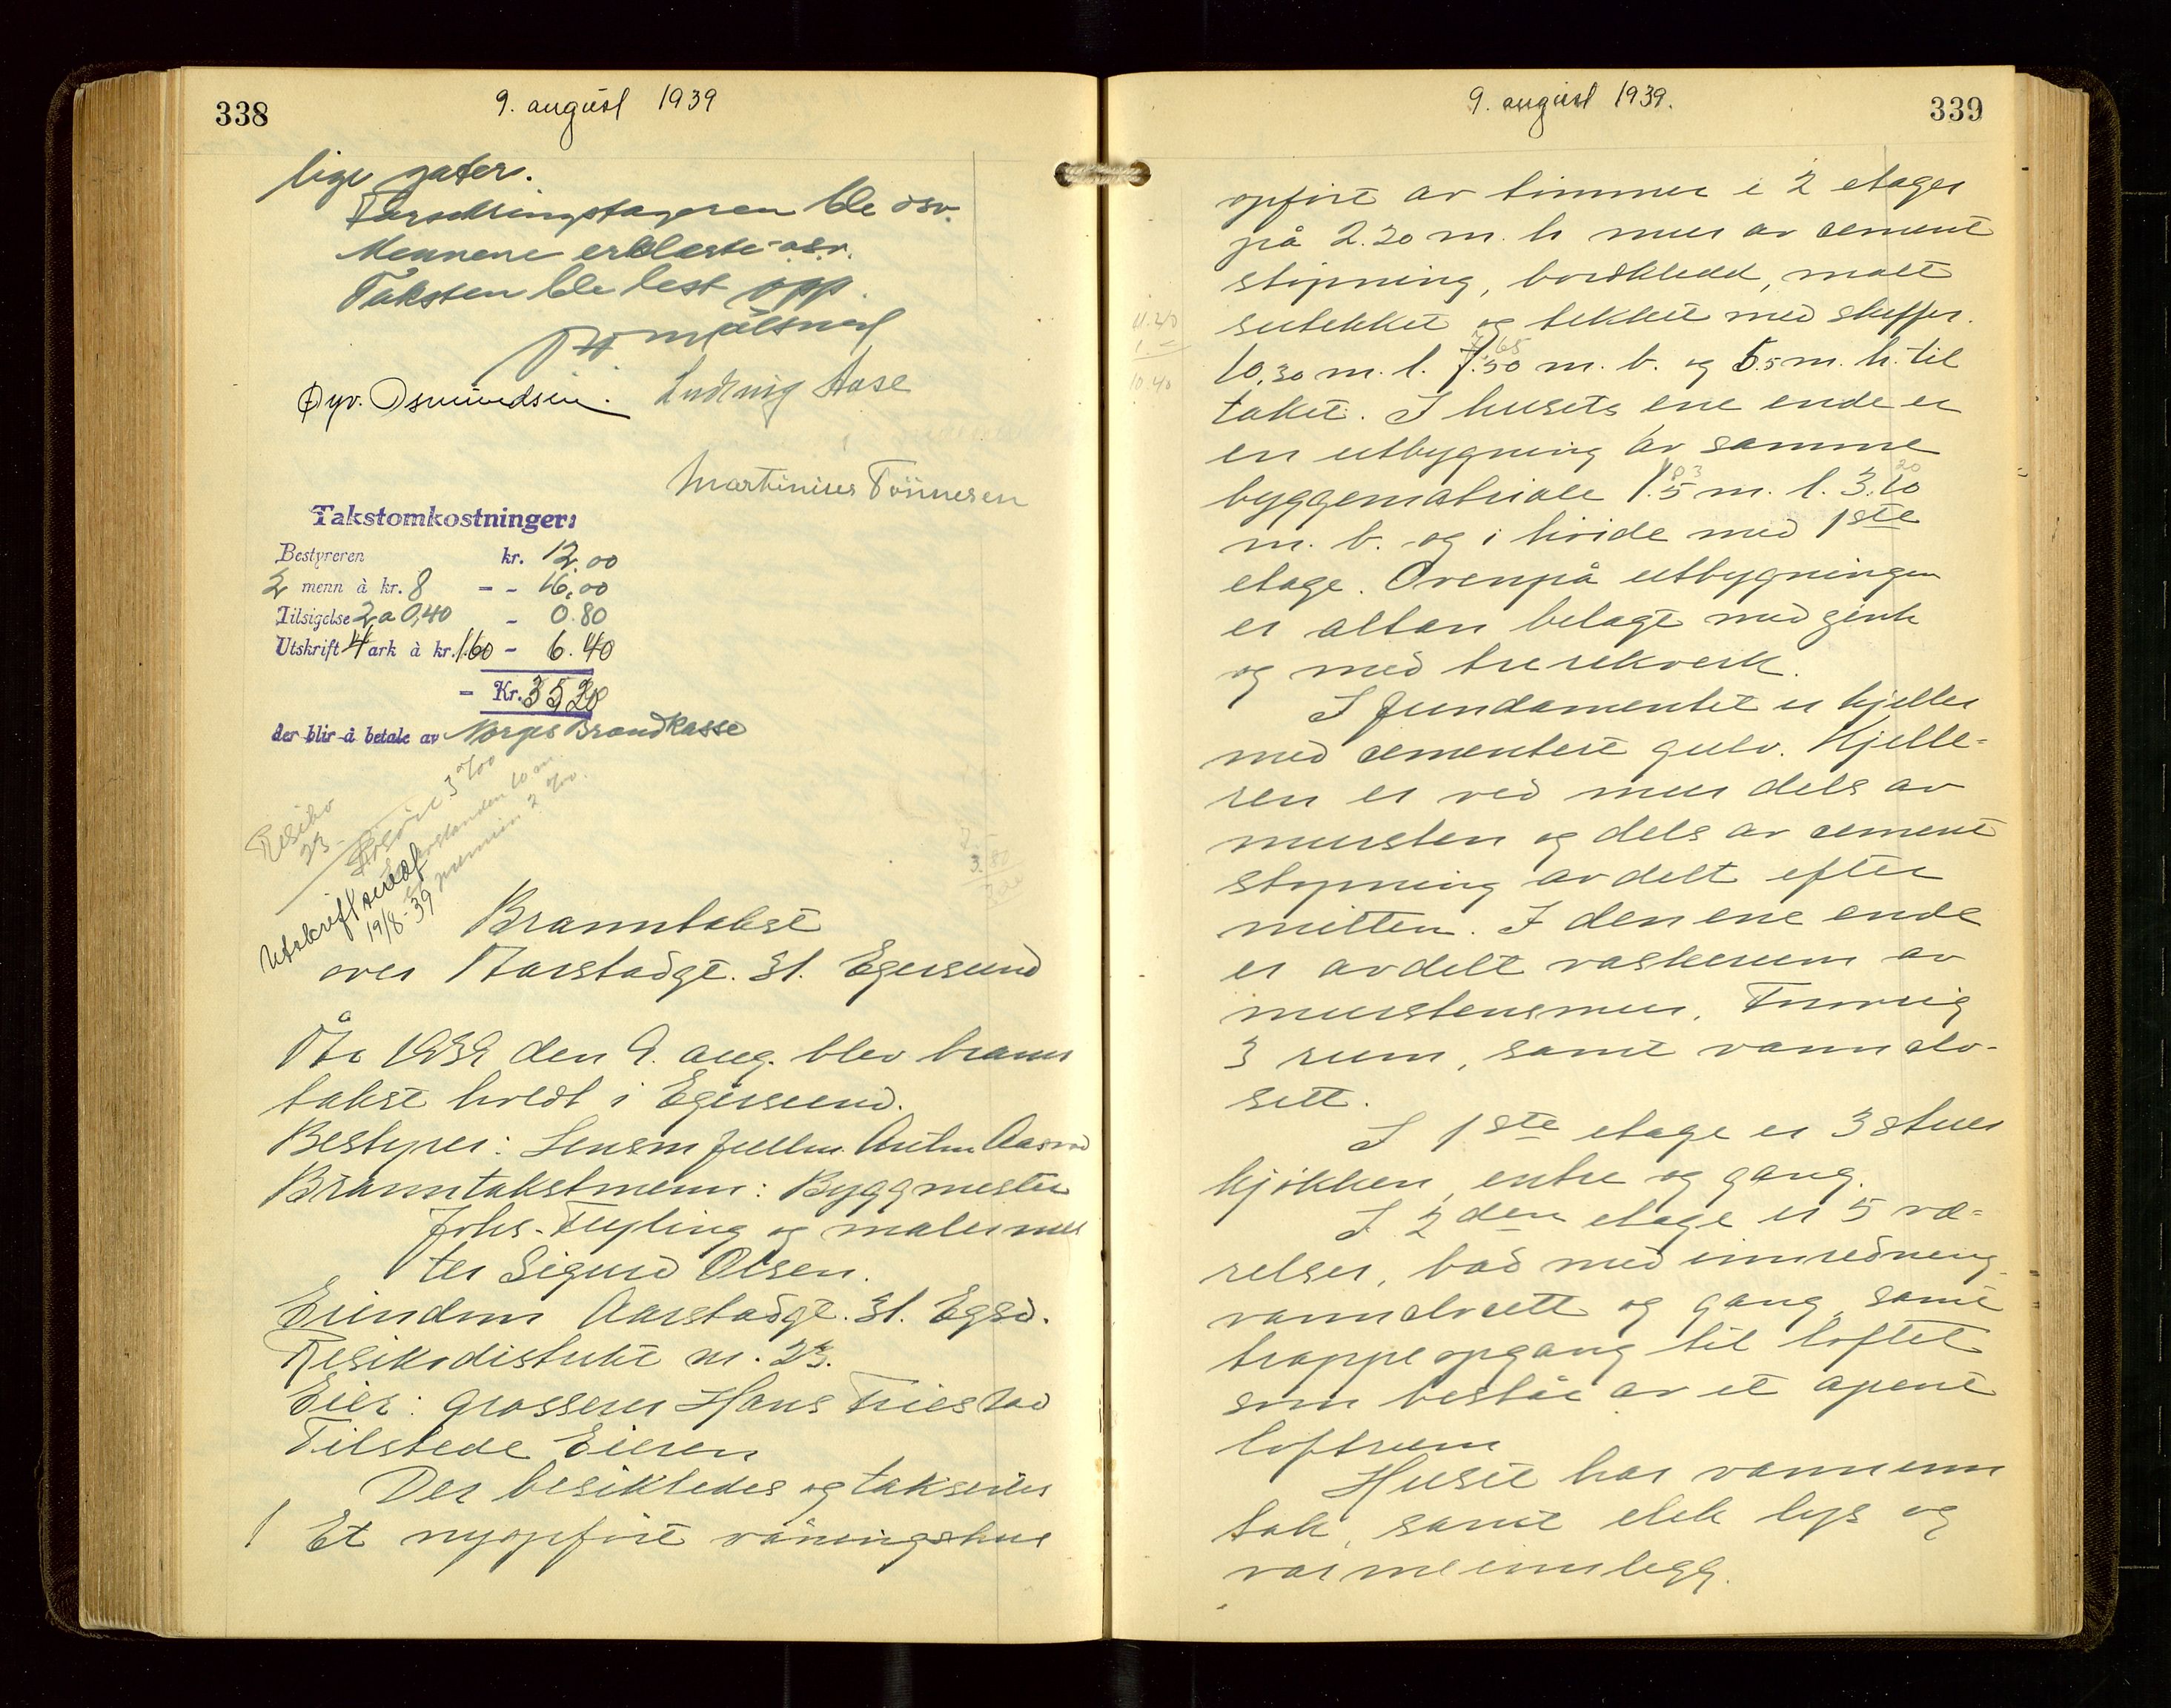 338
9. august 1939
lige gater.
Forsikringstageren ble osv.
Mennene erklærte osv.
Taksten ble lest opp.
Øyv. Osmundsen. Ludvig Aase
Martinius Tönnesen
Takstomkostninger:
Bestyreren kr. 12.00
2 menn à kr. 8 - - 16,00
Tilsigelse 2 a 0,40 - 0.80
Utskrift 4 ark à kr. 1.60 - 6.40
- Kr. 35,20
der blir å betale av Norges Brandkasse
Resiko
23
3 ‰
premien 2 ‰.
Utskrift sendt
19/8-39
Branntakst
over Aarstadgt. 31. Egersund
År 1939 den 9. aug. blev brann
takst holdt i Egersund.
Bestyrer: Lensm fullm. Anton Aasrud
Branntakstmenn: Byggmester
Johs. Tuyling og malermes
ter Sigurd Olsen.
Eiendom Aarstadgt. 31. Egsd.
Resikodistrikt nr. 23.
Eier: Grosserer Hans Friestad
Tilstede Eieren
Der besiktedes og takseres
1 Et nyopført våningshus
9. august 1939.
339
opført av timmer i 2 etager
på 2.20 m. h mur av cement
støpning, bordkledd, malt
sutekket og tekket med skiffer.
10,30 m. l. 7.50 m. b. og 5.5 m. h. til
taket. I husets ene ende er
en utbygning av samme
byggematriale 1.5 m. l. 3.10
m. b. og i høide med 1ste
etage. Ovenpå utbygningen
er altan belagt med zink
og med tre rekverk.
I fundamentet er kjeller
med cementert gulv. Kjelle-
ren er ved mur dels av
mursten og dels av cement
støpning avdelt efter
mitten. I den ene ende
er avdelt vaskerum av
murstensmur. Forøvrig
3 rum, samt vannclo-
sett.
I 1ste etage er 3 stuer
kjøkken, entre og gang.
I 2den etage er 5 væ-
relser, bad med innredning
vannclosett og gang, samt
trappeopgang til loftet
som består av et åpent
loftrum
Huset har vanninn
tak, samt elek lys og
varmeinnlegg.